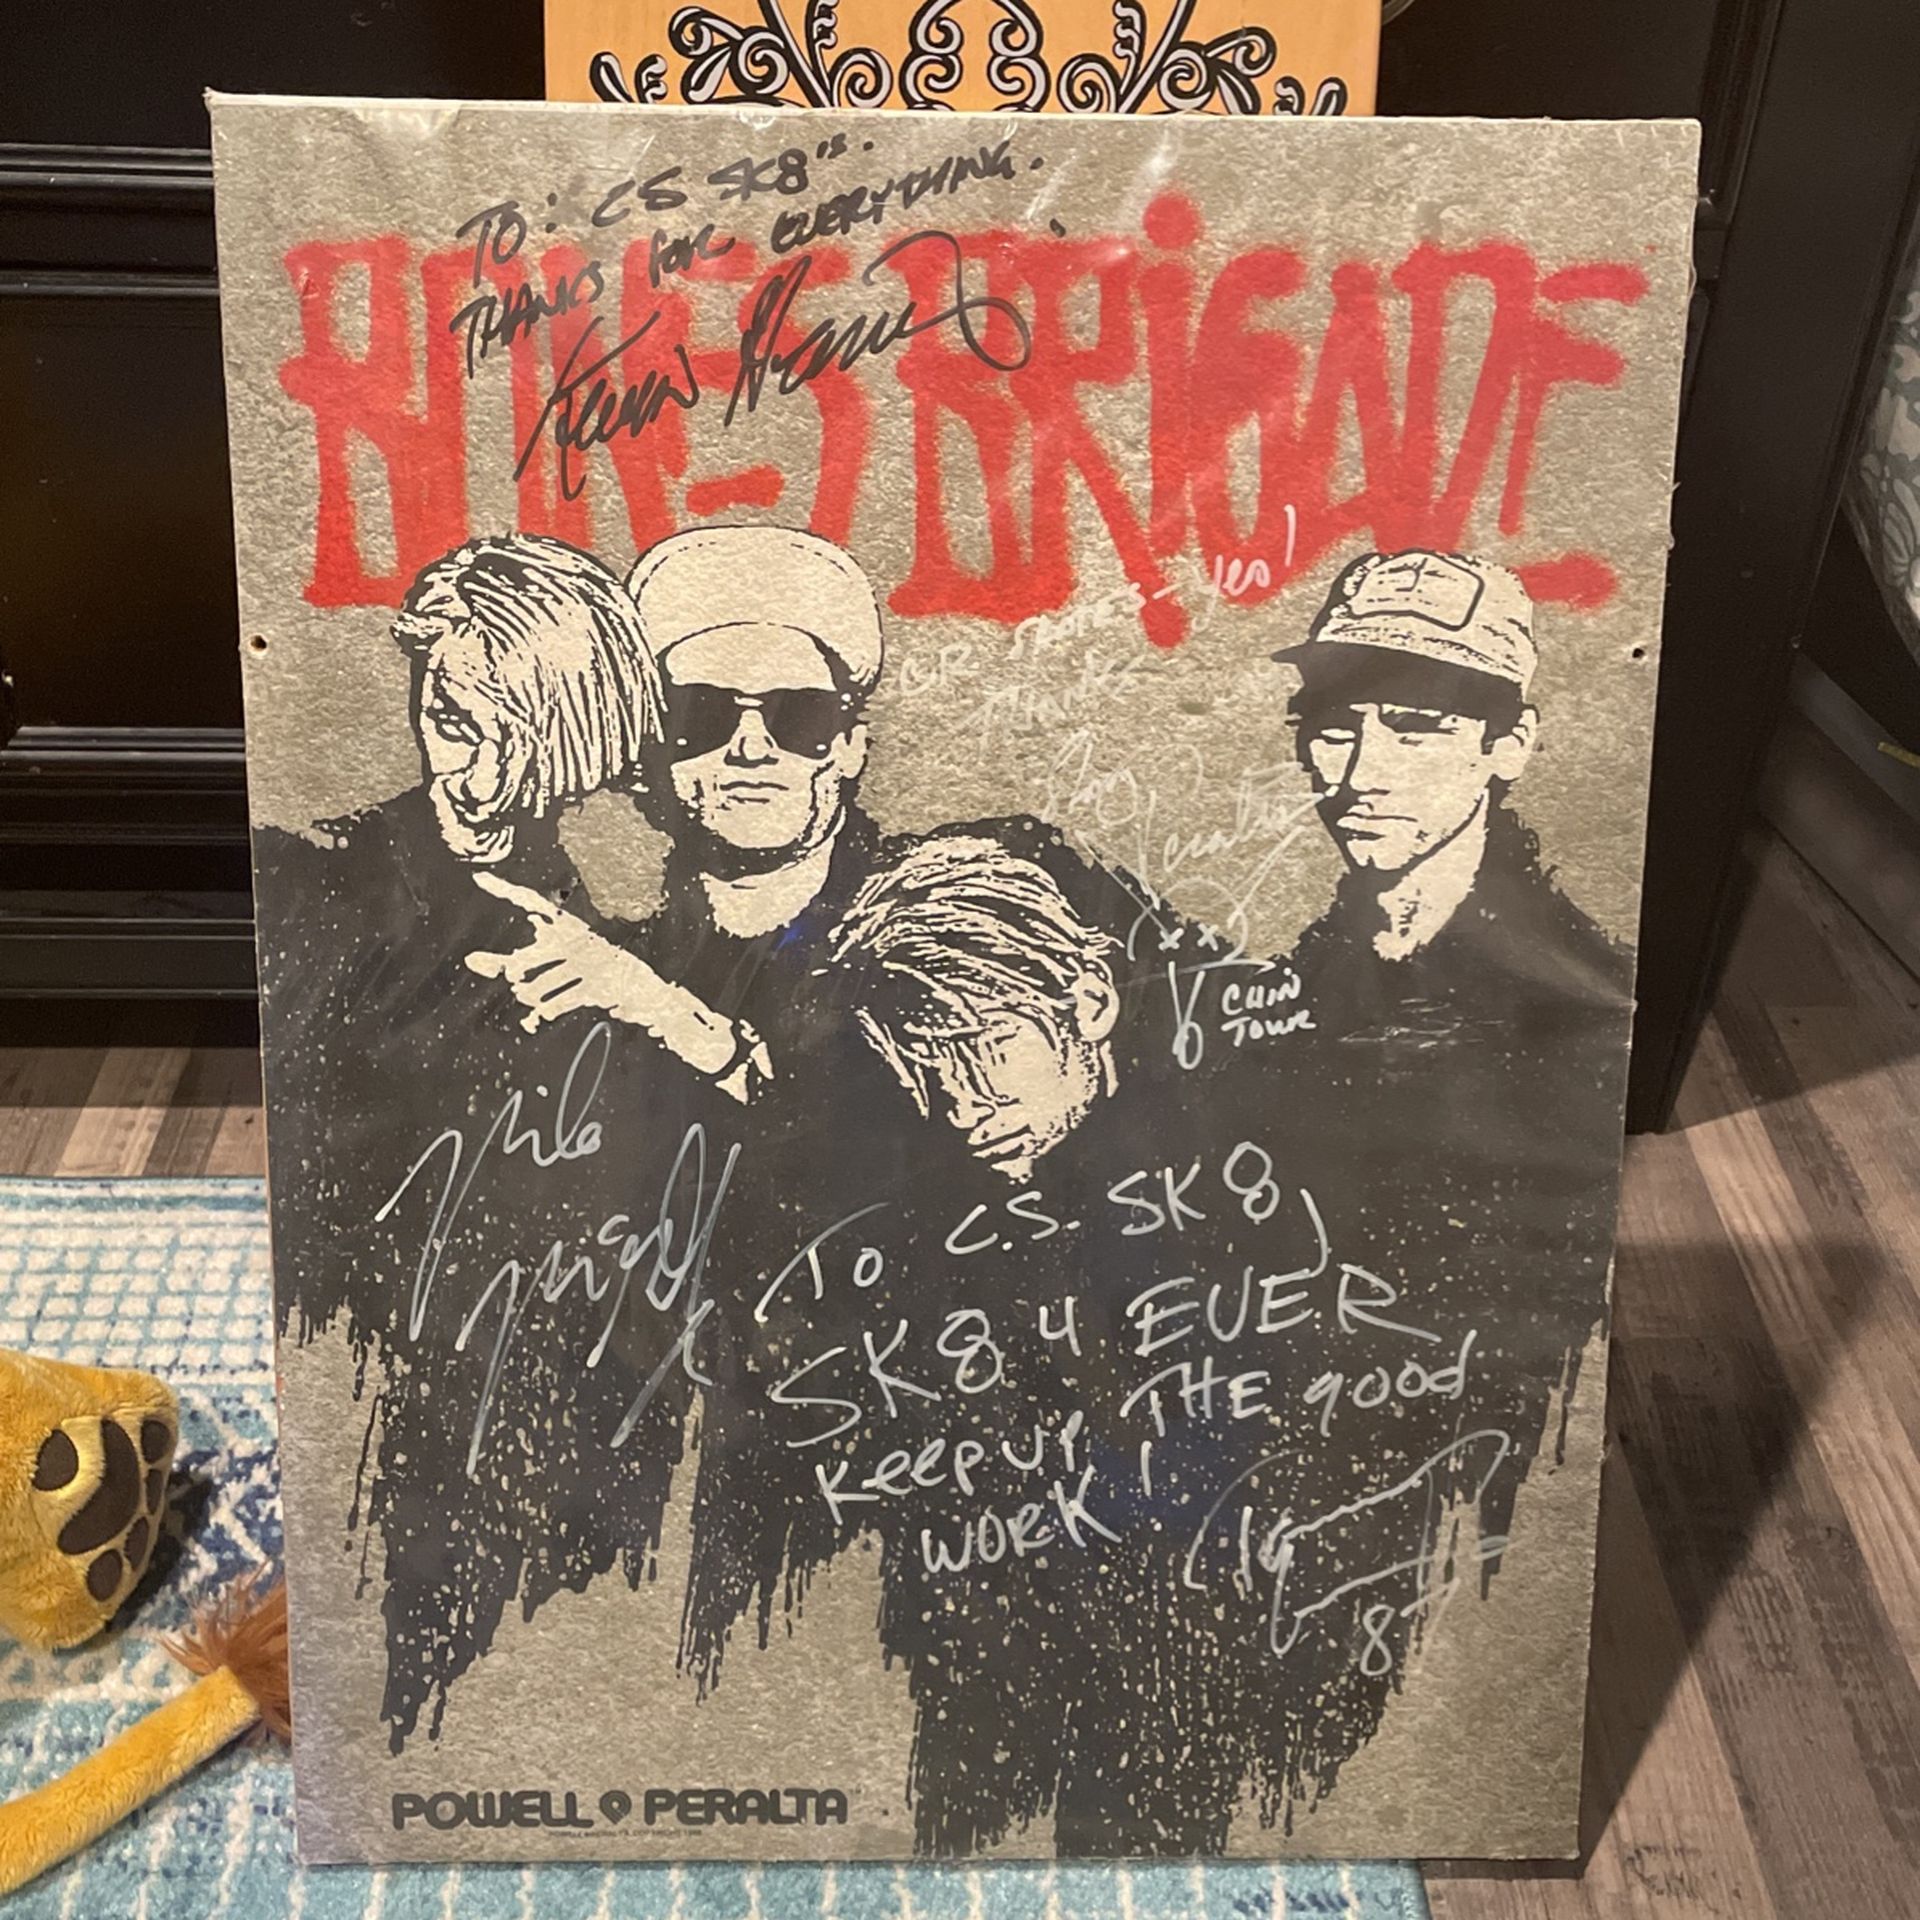 TO: CS SK8's.
THANKS for EVERYTHING.
BONES BRIGADE
SKATES - yes!
THANKS
(xx)
CHIN
TOUR
Mike
To C.S. SK8,
SK8 4 EVER
KEEP UP THE good
WORK!
87
POWELL PERALTA